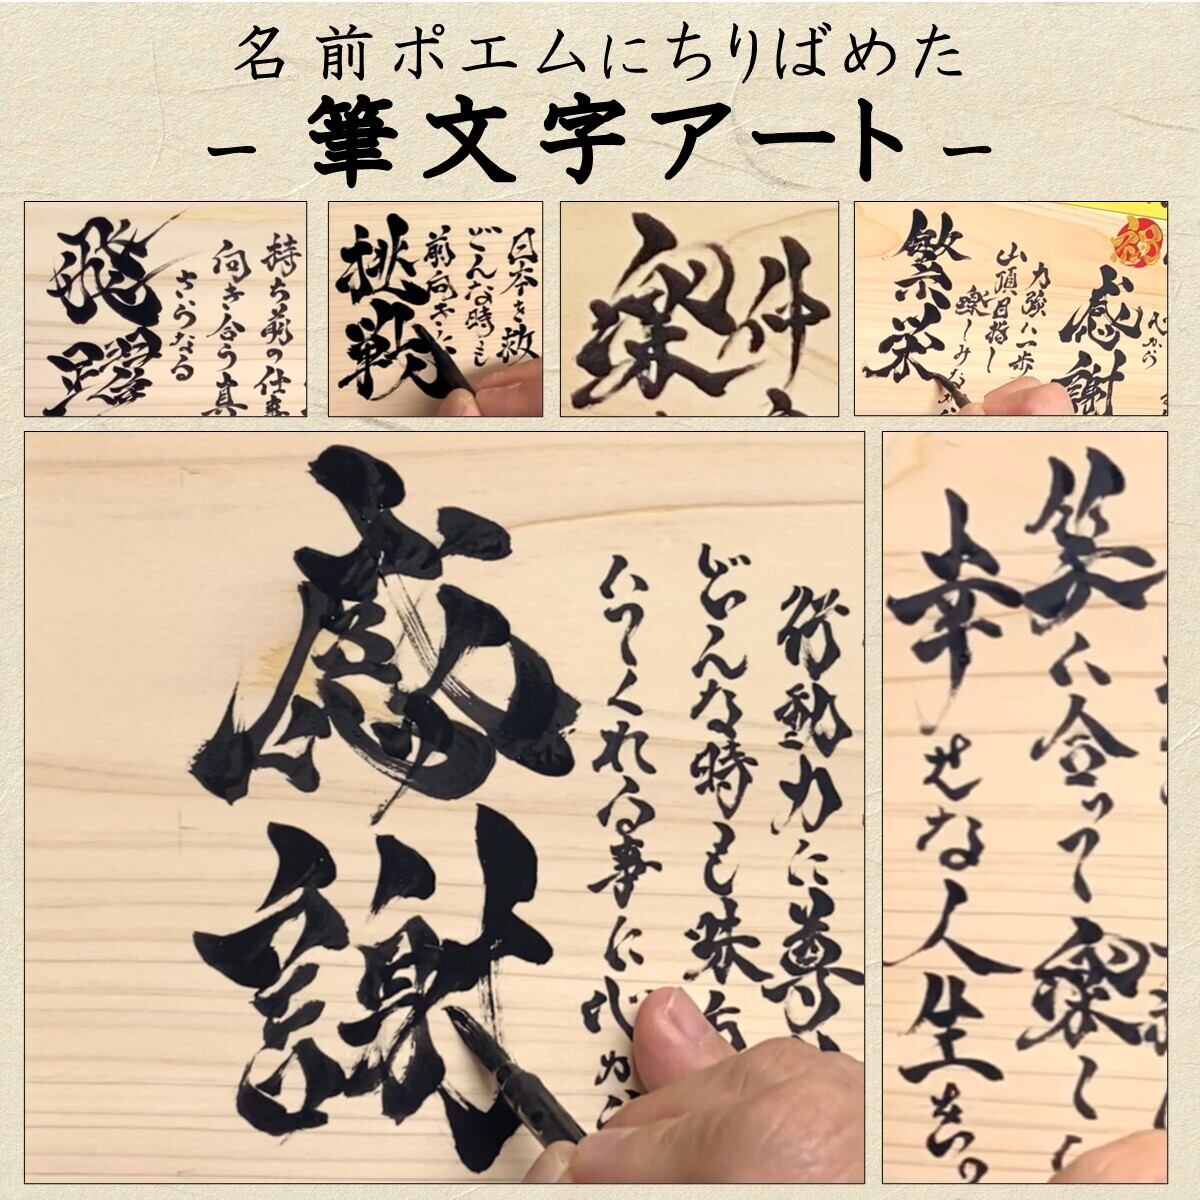 名前ポエムにちりばめた
- 筆文字アート -
持ち前の仕事
向き合う真
さらなる
飛躍
日本を救
どんな時も
前向きに
挑戦
仲
楽
祝
感謝
力強い一歩
山頂目指し
楽しみな
繁栄
行動力に尊
どんな時も味方
いてくれる事に
感謝
笑い合って楽し
幸せな人生を。